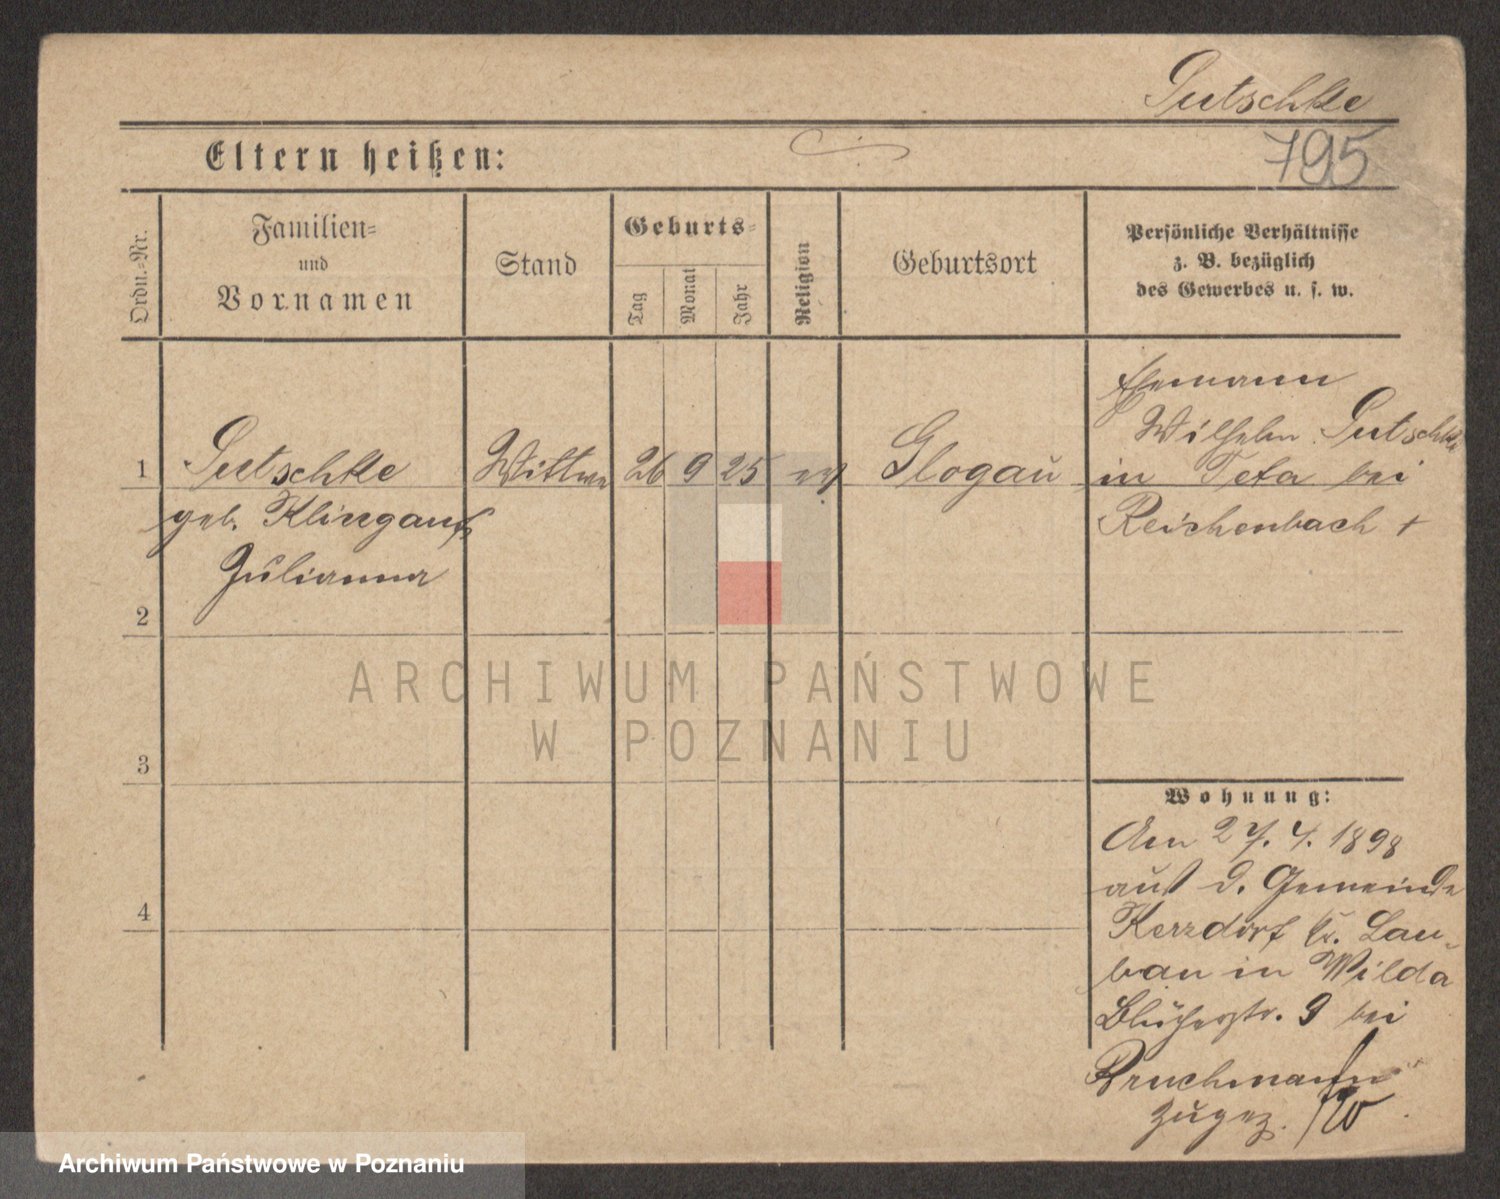 Gutschke
795
Eltern heißen:
Ordn.-Nr.
Familien-
und
Vornamen
Stand
Geburts-
Tag
Monat
Jahr
Religion
Geburtsort
Persönliche Verhältnisse
z. B. bezüglich
des Gewerbes u. s. w.
1
Gutschke
geb. Klingauf
Julianna
Wittwe
26
9
25
ev
Glogau
Ehemann
Wilhelm Gutschke
in bei
Reichenbach +
2
3
4
Wohnung:
Am 27. 4. 1898
aus d. Gemeinde
Kerzdorf Kr. Lau-
ban in Wilda
Blücherstr. 9 bei
Bruchmann
zugez.
ARCHIWUM PAŃSTWOWE
W POZNANIU
Archiwum Państwowe w Poznaniu